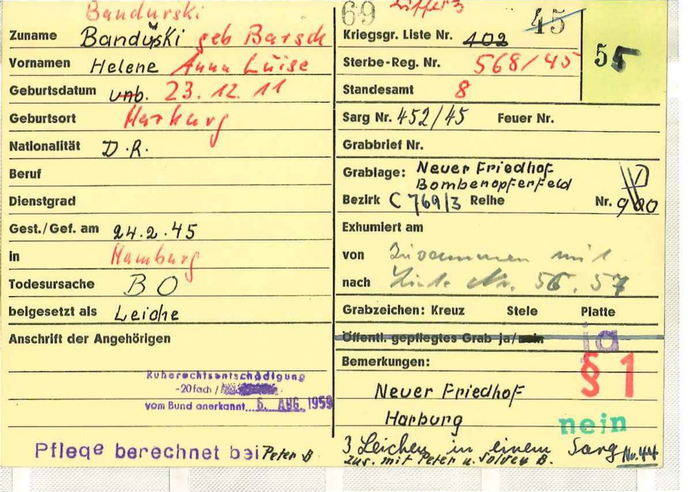 Bandurski
Zuname Bandurski geb Barsch
Vornamen Helene Anna Luise
Geburtsdatum unb. 23.12.11
Geburtsort Harburg
Nationalität D.R.
Beruf
Dienstgrad
Gest./Gef. am 24.2.45
in Hamburg
Todesursache BO
beigesetzt als Leiche
Anschrift der Angehörigen
Ruherechtsentschädigung
-20fach /
vom Bund anerkannt 6. AUG. 1959
Pflege berechnet bei Peter B
69 Ziffer 3 45
Kriegsgr. Liste Nr. 102
55
Sterbe-Reg. Nr. 568/45
Standesamt 8
Sarg Nr. 452/45 Feuer Nr.
Grabbrief Nr.
Grablage: Neuer Friedhof
Bombenopferfeld
Bezirk C 769/3 Reihe Nr.
Exhumiert am
von Zusammen mit
nach Liste Nr. 56. 57
Grabzeichen: Kreuz Stele Platte
Öffentl. gepflegtes Grab ja/nein ja
Bemerkungen: § 1
Neuer Friedhof
Harburg nein
3 Leichen in einem Sarg Nr. 44
zus. mit Peter u. B.